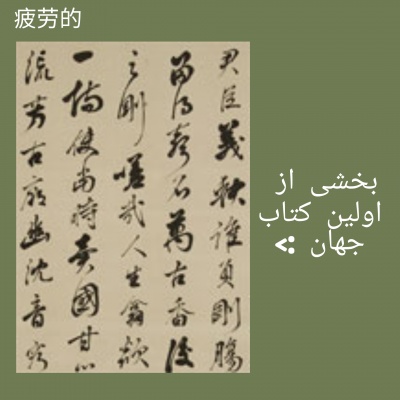 疲劳的
君臣義缺誰負剛腸
留得聲名萬古香後
之剛嗟哉人生翕欻
一場使當時賣國甘心
流芳古廟幽沈音容
بخشی از
اولین کتاب
جهان :>